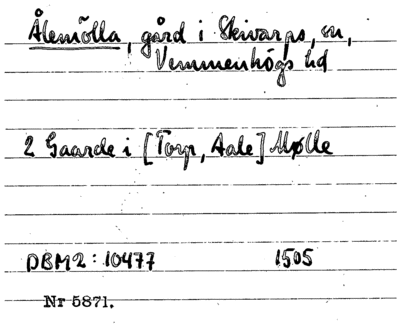 Ålemölla, gård i Skivarps sn,
Vemmenhögs hd
2 Gaarde i [Torp, Aale] Mølle
DBM2: 10477 1505
Nr 5871.